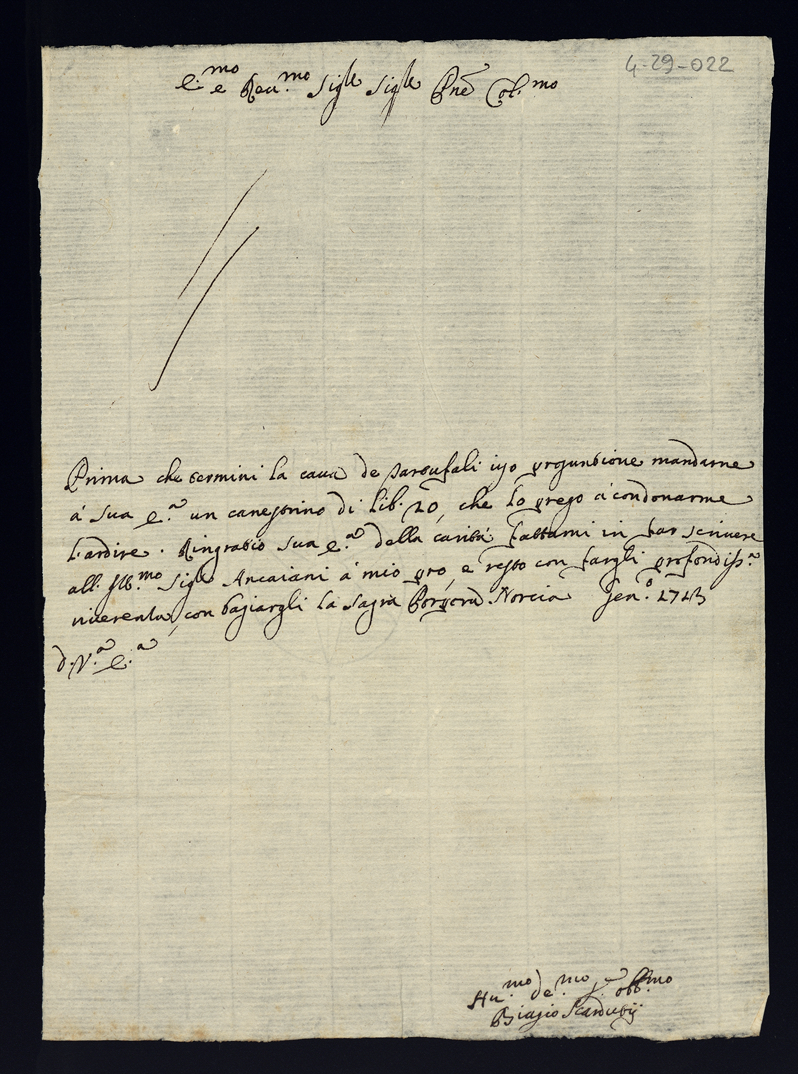 4-29-022
E.mo e Reu.mo Sig.re Sig.re Pne Col.mo
Prima che termini la caua de Taroufali iyo presuntione mandarne
à sua E.a un canestrino di lib. 20, che lo prego à condonarme
l'ardire. Ringratio sua E.a della carità fattami in far scriuere
all. Ill.mo Sig.re Ancaiani à mio pro, e resto con fargli profondiss.a
riuerenza, con bagiargli la sagra Porpora. Norcia Gen.o 1723
d. V.a E.a
Hu.mo de.mo e obb.mo
Biagio